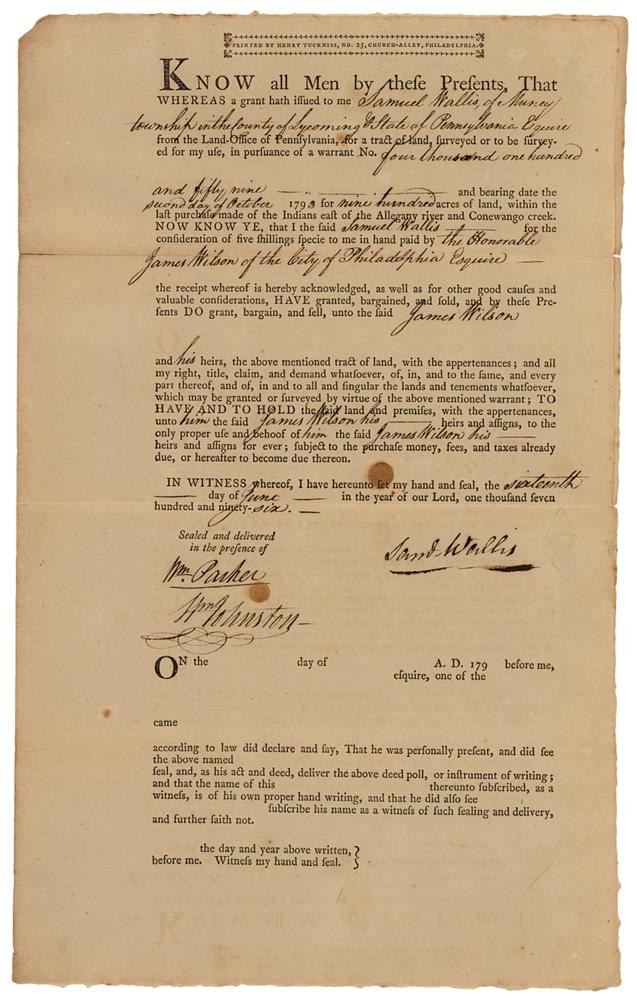 PRINTED BY HENRY TUCKNISS, NO. 25, CHURCH-ALLEY, PHILADELPHIA.
KNOW all Men by theſe Preſents, That
WHEREAS a grant hath iſſued to me Samuel Wallis, of Muncy
township in the County of Lycoming & State of Pennsylvania Esquire
from the Land-Office of Pennſylvania, for a tract of land, ſurveyed or to be ſurvey-
ed for my uſe, in purſuance of a warrant No. four thousand one hundred
and fifty nine — and bearing date the
second day of October 1793 for nine hundred acres of land, within the
laſt purchaſe made of the Indians eaſt of the Allegany river and Conewango creek.
NOW KNOW YE, that I the ſaid Samuel Wallis — for the
conſideration of five ſhillings ſpecie to me in hand paid by the Honorable
James Wilson of the City of Philadelphia Esquire —
the receipt whereof is hereby acknowledged, as well as for other good cauſes and
valuable conſiderations, HAVE granted, bargained, and ſold, and by theſe Pre-
ſents DO grant, bargain, and ſell, unto the ſaid James Wilson
and his heirs, the above mentioned tract of land, with the appertenances; and all
my right, title, claim, and demand whatſoever, of, in, and to the ſame, and every
part thereof, and of, in and to all and ſingular the lands and tenements whatſoever,
which may be granted or ſurveyed by virtue of the above mentioned warrant; TO
HAVE AND TO HOLD the ſaid land and premiſes, with the appertenances,
unto him the ſaid James Wilson his — heirs and aſſigns, to the
only proper uſe and behoof of him the ſaid James Wilson his —
heirs and aſſigns for ever; ſubject to the purchaſe money, fees, and taxes already
due, or hereafter to become due thereon.
IN WITNESS whereof, I have hereunto ſet my hand and ſeal, the sixteenth
— day of June — in the year of our Lord, one thouſand ſeven
hundred and ninety-six. —
Sealed and delivered
in the preſence of
Saml Wallis
Wm. Parker
Wm Johnston
ON the day of A. D. 179 before me,
eſquire, one of the
came
according to law did declare and ſay, That he was perſonally preſent, and did ſee
the above named
ſeal, and, as his act and deed, deliver the above deed poll, or inſtrument of writing;
and that the name of this thereunto ſubſcribed, as a
witneſs, is of his own proper hand writing, and that he did alſo ſee
ſubſcribe his name as a witneſs of ſuch ſealing and delivery,
and further ſaith not.
the day and year above written, }
before me. Witneſs my hand and ſeal.